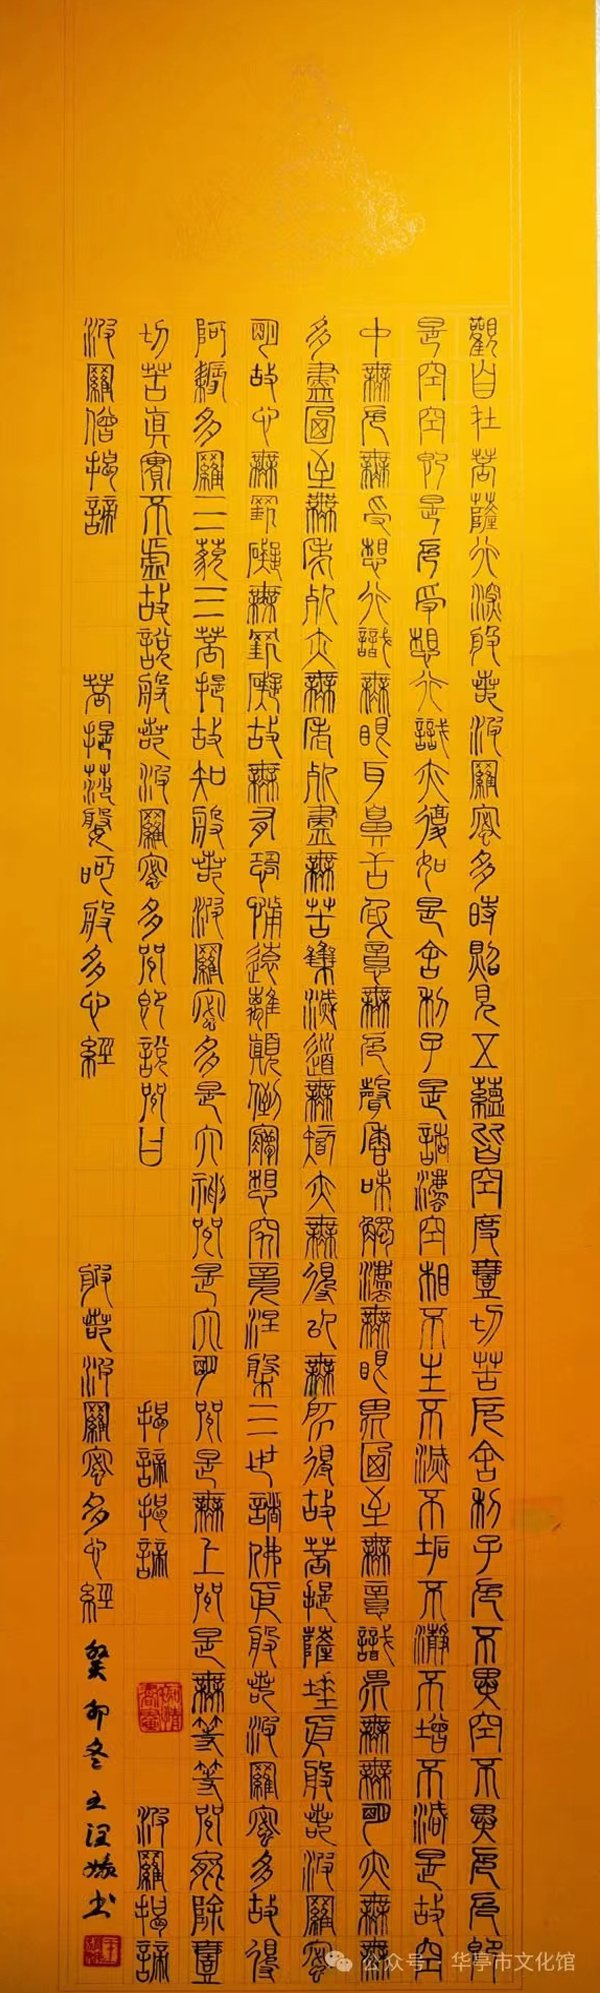 觀自在菩薩行深般若波羅密多時照見五蘊皆空度壹切苦厄舍利子色不異空不異色色即
是空空即是色受想行識亦復如是舍利子是諸法空相不生不滅不垢不淨不增不減是故空
中無色無受想行識無眼耳鼻舌身意無色聲香味觸法無眼界迺至無意識界無無明亦無無
多盡迺至無老死亦無老死盡無苦集滅道無智亦無得以無所得故菩提薩埵依般若波羅密
明故心無罣礙無罣礙故無有恐怖遠離顛倒夢想究竟涅槃三世諸佛依般若波羅密多故得
阿耨多羅三藐三菩提故知般若波羅密多是大神咒是大明咒是無上咒是無等等咒能除壹
切苦真實不虛故說般若波羅密多咒即說咒曰 揭諦揭諦 波羅揭諦
波羅僧揭諦 菩提莎婆呵般多心經 般若波羅密多心經 癸卯冬王书
公众号·华亭市文化馆